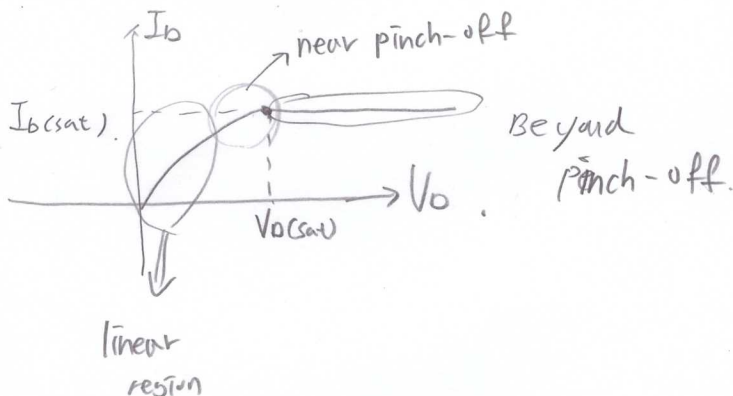 I_D
near pinch-off
I_D(sat).
Beyond
pinch-off.
V_D.
V_D(sat)
linear
region